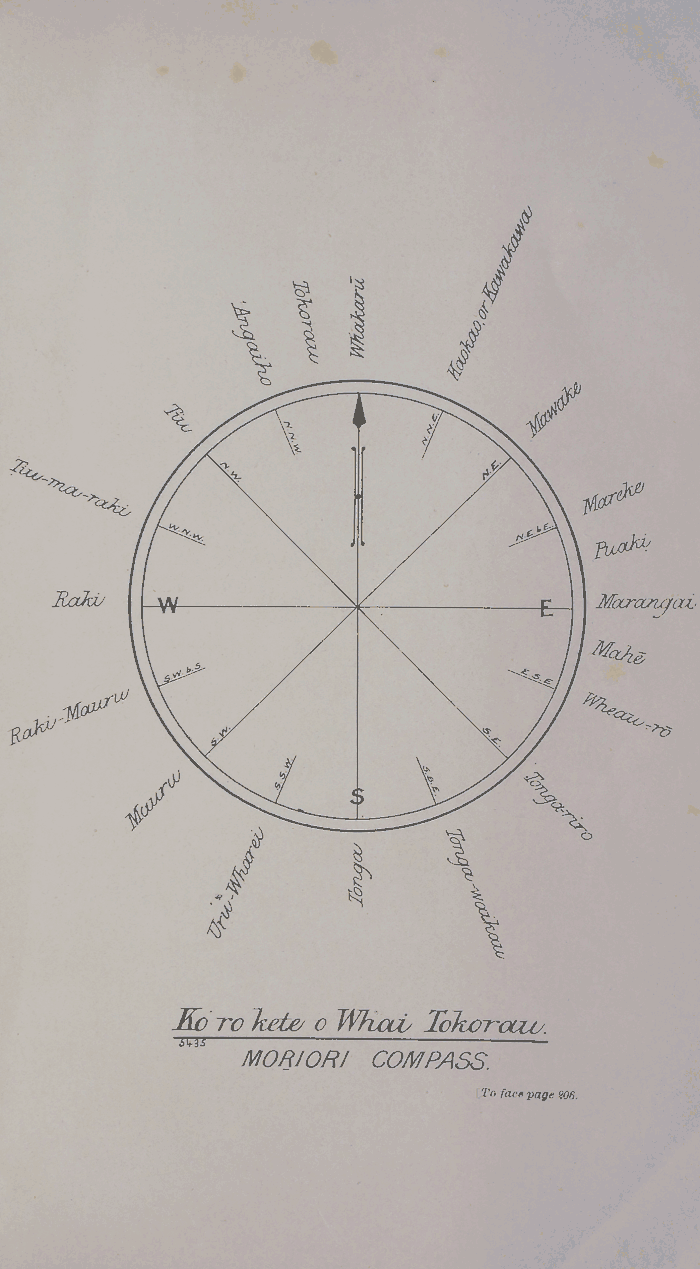 Whakarū
Haokao or Kawakawa
Mawake
Mareke
Puaki
Marangai
Mahē
Wheau-rō
Tonga-riro
Tonga-waikau
Tonga
Uru-Wharei
Mauru
Raki-Mauru
Raki
Tiu-ma-raki
Tiu
'Angaiho
Tokorau
N.N.E.
N.E.
N.E.b.E.
E
E.S.E.
S.E.
S.b.E.
S
S.S.W
S.W.
S.W.b.S.
W
W.N.W.
N.W.
N.N.W
Ko ro kete o Whai Tokorau.
5435
MORIORI COMPASS.
[To face page 206.